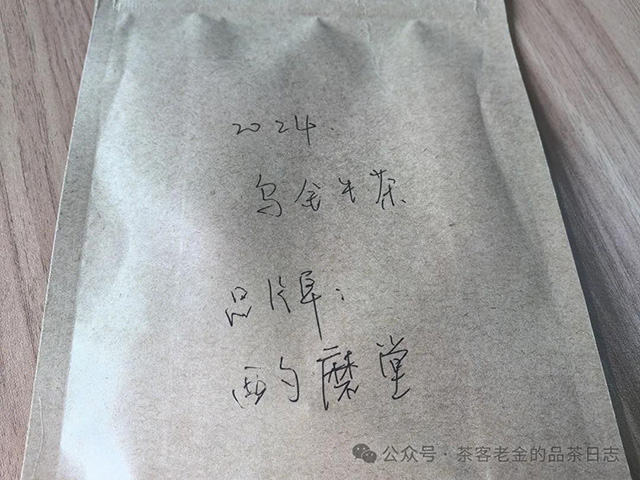 2024.
乌金牛茶
品牌:
酌磨堂
公众号·茶客老金的品茶日志